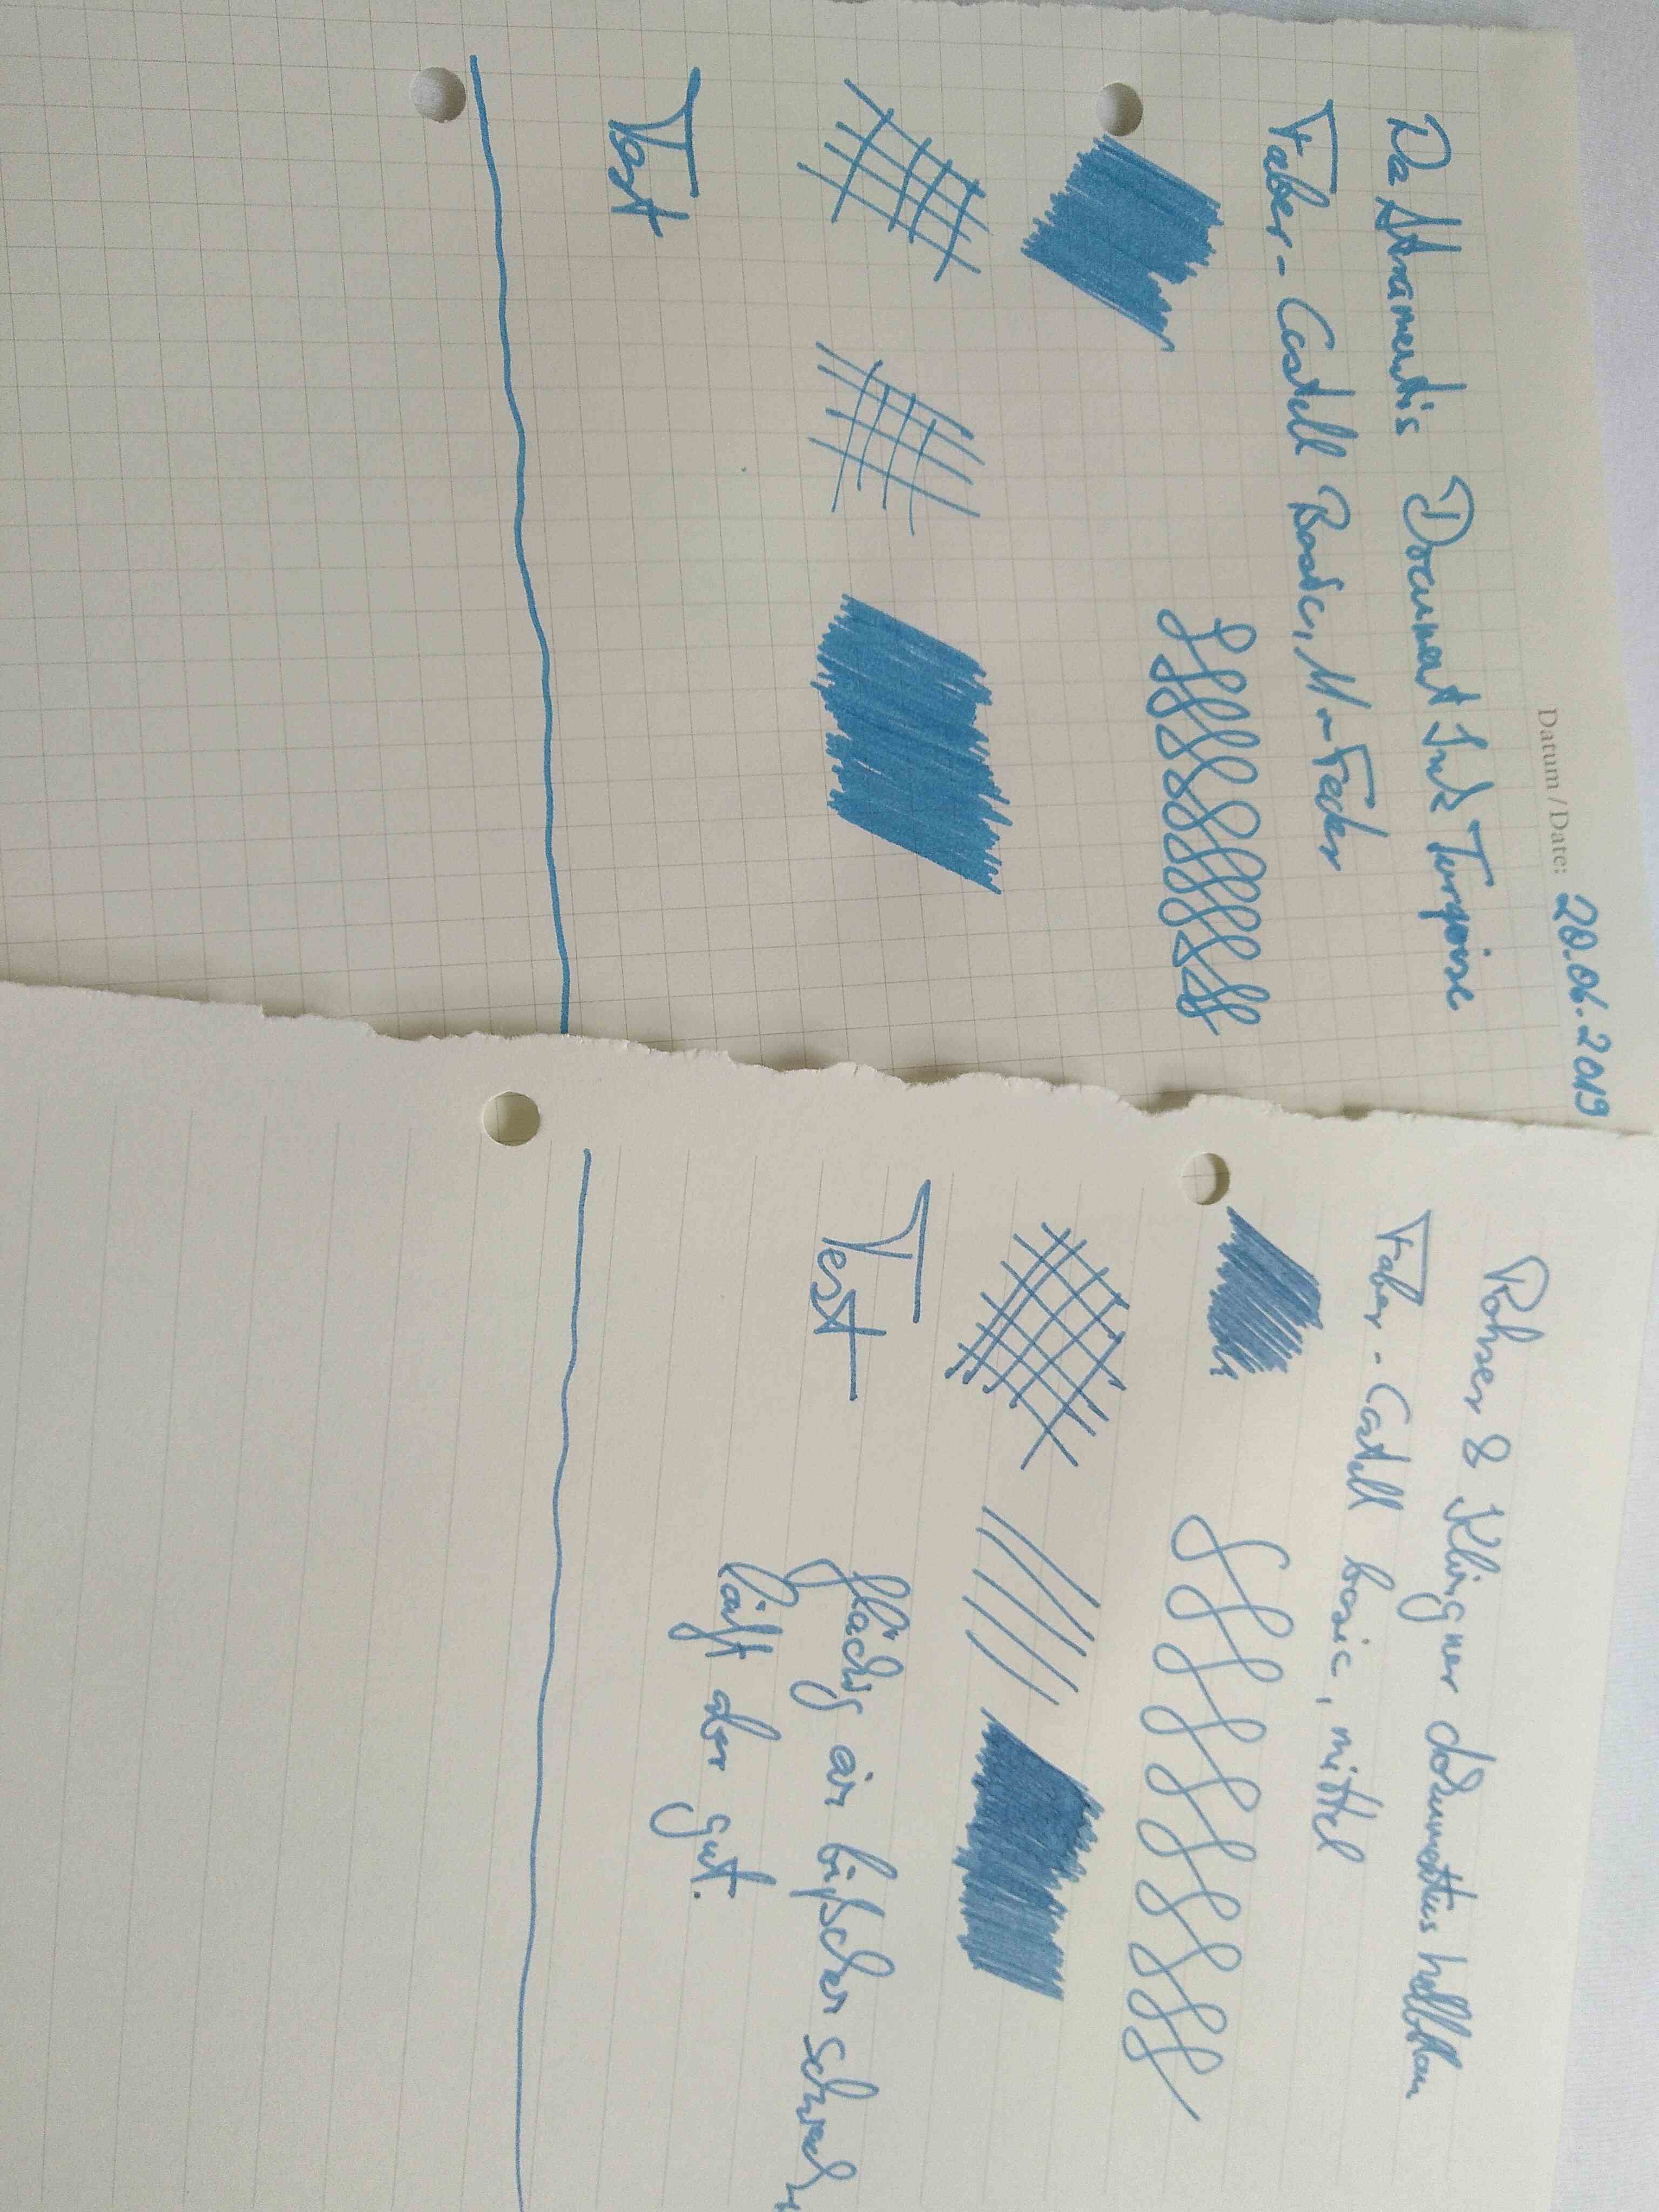 Datum / Date: 20.06.2019
De Atramentis Document Ink Turqoise
Faber-Castell Basic, M-Feder
Test
Rohrer & Klingner dokumentus hellblau
Faber-Castell basic, mittel
Test
flächig ein bißchen schwach,
läuft aber gut.